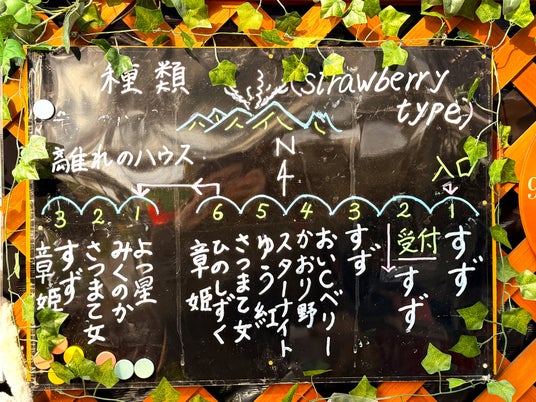 種類 (strawberry type)
N
離れのハウス
入口
3 2 1 6 5 4 3 2 1
受付
すず
すず
すず
おいCベリー
かおり野
スターナイト
ゆう紅
さつまて女
ひのしずく
章姫
よつ星
みくのか
さつまて女
すず
章姫